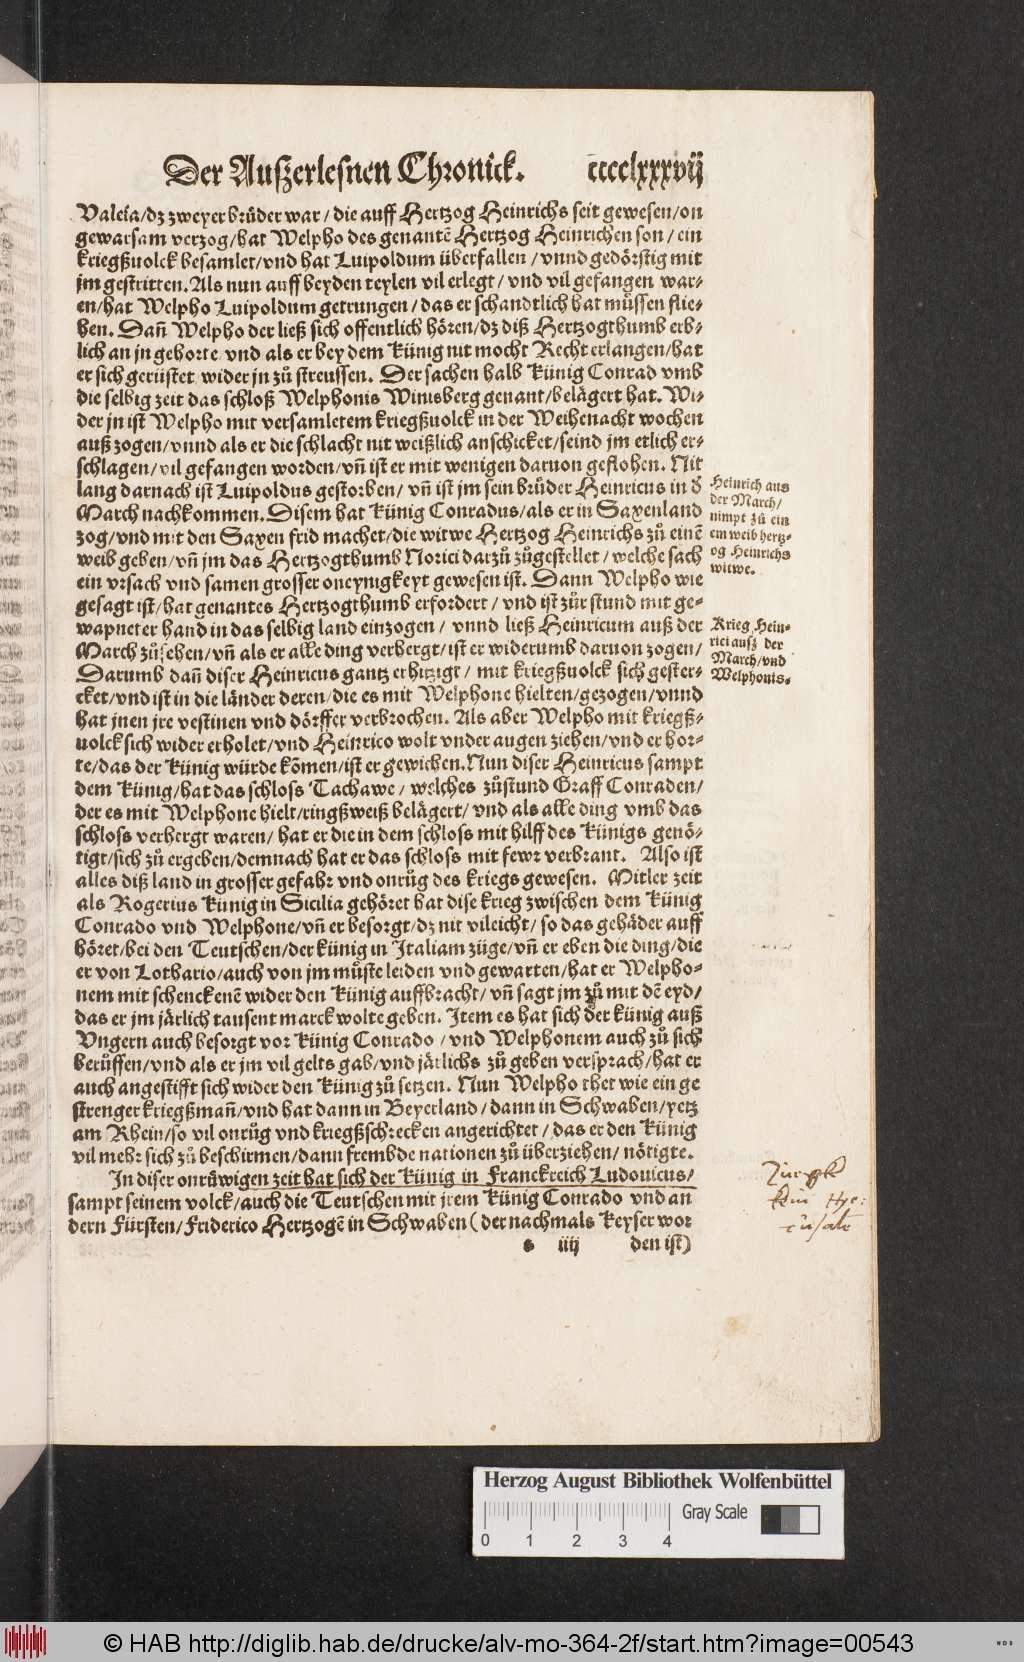 Der Außerlesnen Chronick. cccclxxxvij
Valeia/dz zweyer brůder war/die auff Hertzog Heinrichs seit gewesen/on
gewarsam verzog/hat Welpho des genantē Hertzog Heinrichen son/ein
kriegßuolck besamlet/vnd hat Luipoldum überfallen/vnnd gedörstig mit
jm gestritten. Als nun auff beyden teylen vil erlegt/vnd vil gefangen war-
en/hat Welpho Luipoldum getrungen/das er schandtlich hat můssen flie-
hen. Dañ Welpho der ließ sich offentlich hören/dz diß Hertzogthumb erb-
lich an jn gehorte vnd als er bey dem Künig nit mocht Recht erlangen/hat
er sich gerüstet wider jn zů streussen. Der sachen halb Künig Conrad vmb
die selbig zeit das schloß Welphonis Winisberg genant/belägert hat. Wi-
der jn ist Welpho mit versamletem kriegßuolck in der Weihenacht wochen
auß zogen/vnnd als er die schlacht nit weißlich anschicket/seind jm etlich er-
schlagen/vil gefangen worden/vñ ist er mit wenigen daruon geflohen. Nit
lang darnach ist Luipoldus gestorben/vñ ist jm sein brůder Heinricus in d̕
March nachkommen. Disem hat Künig Conradus/als er in Saxenland
zog/vnd mit den Saxen frid machet/die witwe Hertzog Heinrichs zů einē
weib geben/vñ jm das Hertzogthumb Norici darzů zůgestellet/welche sach
ein vrsach vnd samen grosser oneynigkeyt gewesen ist. Dann Welpho wie
gesagt ist/hat genantes Hertzogthumb erfordert/vnd ist zůr stund mit ge-
wapneter hand in das selbig land einzogen/vnnd ließ Heinricum auß der
March zůsehen/vñ als er alle ding verhergt/ist er widerumb daruon zogen/
Darumb dañ diser Heinricus gantz erhitzigt/mit kriegßuolck sich gester-
cket/vnd ist in die länder deren/die es mit Welphone hielten/gezogen/vnnd
hat jnen jre vestinen vnd dörffer verbrochen. Als aber Welpho mit kriegß-
uolck sich wider erholet/vnd Heinrico wolt vnder augen ziehen/vnd er hor-
te/das der Künig würde kōmen/ist er gewichen. Nun diser Heinricus sampt
dem Künig/hat das schloss Tachawe/welches zůstund Graff Conraden/
der es mit Welphone hielt/ringßweiß belägert/vnd als alle ding vmb das
schloss verhergt waren/hat er die in dem schloss mit hilff des Künigs genö-
tigt/sich zů ergeben/demnach hat er das schloss mit fewr verbrant. Also ist
alles diß land in grosser gefahr vnd onrůg des kriegs gewesen. Mitler zeit
als Rogerius Künig in Sicilia gehöret hat dise krieg zwischen dem Künig
Conrado vnd Welphone/vñ er besorgt/dz nit vileicht/so das gehäder auff
höret/bei den Teutschen/der künig in Italiam züge/vñ er eben die ding/die
er von Lothario/auch von jm můste leiden vnd gewarten/hat er Welpho-
nem mit schenckenē wider den Künig auffbracht/vñ sagt jm zů mit dē eyd/
das er jm järlich tausent marck wolte geben. Item es hat sich der künig auß
Vngern auch besorgt vor Künig Conrado/vnd Welphonem auch zů sich
berůffen/vnd als er jm vil gelts gab/vnd järlichs zů geben versprach/hat er
auch angestifft sich wider den Künig zů setzen. Nun Welpho thet wie ein ge
strenger kriegßmañ/vnd hat dann in Beyerland/dann in Schwaben/yetz
am Rhein/so vil onrůg vnd kriegßschrecken angerichtet/das er den Künig
vil mehr sich zů beschirmen/dann frembde nationen zů überziehen/nötigte.
In diser onrůwigen zeit hat sich der Künig in Franckreich Ludouicus/
sampt seinem volck/auch die Teutschen mit jrem Künig Conrado vnd an
dern Fürsten/Friderico Hertzogē in Schwaben (der nachmals Keyser wor
s iiij den ist)
Heinrich aus
der March/
nimpt zů ein
em weib hertz-
og Heinrichs
witwe.
Krieg Hein-
rici ausz der
March/vnd
Welphonis.
Herzog August Bibliothek Wolfenbüttel
Gray Scale
0 1 2 3 4
© HAB http://diglib.hab.de/drucke/alv-mo-364-2f/start.htm?image=00543